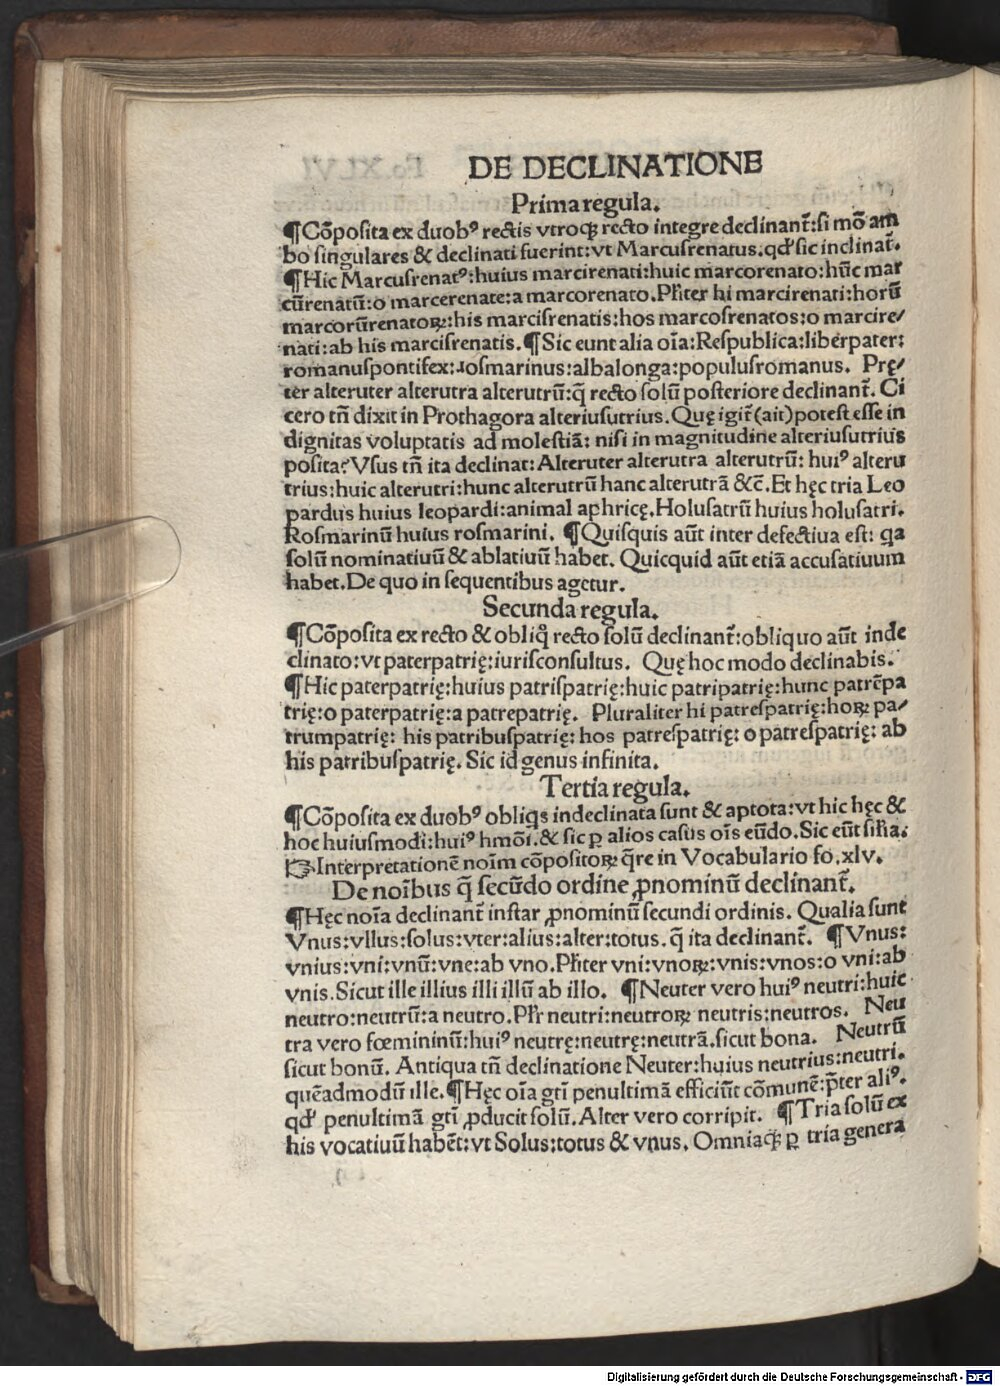 DE DECLINATIONE
Prima regula.
¶Cōposita ex duobꝰ rectis vtroqꝫ recto integre declinant̄:si mōam
bo singulares & declinati fuerint:vt Marcusrenatus.qđ sic inclinat̄.
¶Hic Marcusrenatꝰ:huius marcirenati:huic marcorenato:hūc mar
cūrenatū:o marcerenate:a marcorenato.Pl̄iter hi marcirenati:horū
marcorūrenatoꝝ:his marcisrenatis:hos marcosrenatos:o marcire/
nati:ab his marcisrenatis.¶Sic eunt alia oīa:Respublica:liberpater:
romanuspontifex:rosmarinus:albalonga:populusromanus. Prę/
ter alteruter alterutra alterutrū:q̄ recto solū posteriore declinant̄. Ci
cero tn̄ dixit in Prothagora alteriusutrius.Quę igit̄(ait)potest esse in
dignitas voluptatis ad molestiā: nisi in magnitudine alteriusutrius
posita?Vsus tn̄ ita declinat:Alteruter alterutra alterutrū: huiꝰ alteru
trius:huic alterutri:hunc alterutrū hanc alterutrā &c̄.Et hęc tria Leo
pardus huius leopardi:animal aphricę.Holusatrū huius holusatri.
Rosmarinū huius rosmarini. ¶Quisquis aūt inter defectiua est: qa
solū nominatiuū & ablatiuū habet. Quicquid aūt etiā accusatiuum
habet.De quo in sequentibus agetur.
Secunda regula.
¶Cōposita ex recto & obliq̊ recto solū declinant̄:obliquo aūt inde
clinato:vt paterpatrię:iurisconsultus. Quę hoc modo declinabis.
¶Hic paterpatrię:huius patrispatrię:huic patripatrię:hunc patrēpa
trię:o paterpatrię:a patrepatrię. Pluraliter hi patrespatrię:hoꝝ pa/
trumpatrię: his patribuspatrię: hos patrespatrię: o patrespatrię: ab
his patribuspatrię. Sic id genus infinita.
Tertia regula.
¶Cōposita ex duobꝰ obliqs indeclinata sunt & aptota:vt hic hęc &
hoc huiusmodi:huiꝰ hmōi.& sic ꝑ alios casus oīs eūdo.Sic eūt sil̄ia.
☞Interpretationē noīm cōpositoꝝ q̄re in Vocabulario fo.xlv.
De noībus q̄ secūdo ordine ꝓnominū declinant̄.
¶Hęc noīa declinant̄ instar ꝓnominū secundi ordinis. Qualia sunt
Vnus:vllus:solus:vter:alius:alter:totus.q̄ ita declinant̄. ¶Vnus:
vnius:vni:vnū:vne:ab vno.Pl̄iter vni:vnoꝝ:vnis:vnos:o vni:ab
vnis.Sicut ille illius illi illū ab illo. ¶Neuter vero huiꝰ neutri:huic
neutro:neutrū:a neutro.Pl̄r neutri:neutroꝝ neutris:neutros. Neu
tra vero fœmininū:huiꝰ neutrę:neutrę:neutrā.sicut bona. Neutrū
sicut bonū. Antiqua tn̄ declinatione Neuter:huius neutrius:neutri.
quēadmodū ille.¶Hęc oīa gtī penultimā efficiūt cōmunē:p̄ter aliꝰ.
qđ penultimā gtī ꝓducit solū.Alter vero corripit. ¶Tria solū ex
his vocatiuū habēt:vt Solus:totus & vnus. Omniaqꝫ ꝑ tria genera
Digitalisierung gefördert durch die Deutsche Forschungsgemeinschaft - DFG